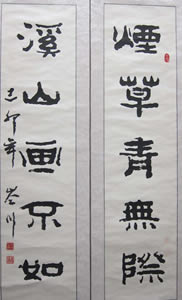 煙草青無際
溪山画不如
己卯年
岑川